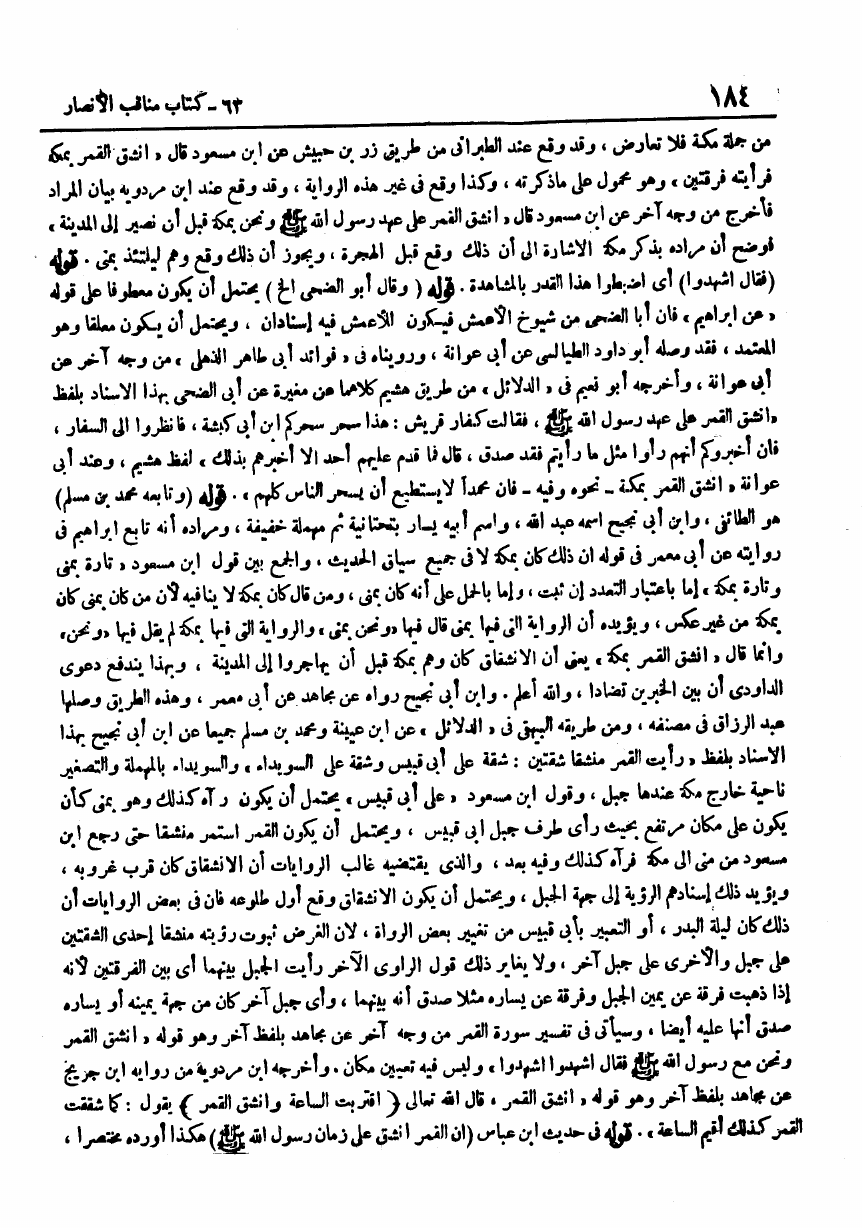 ١٨٤
٦٣ - كتاب مناقب الأنصار
من جملة مكة فلا تعارض ، وقد وقع عند الطبرانى من طريق زر بن حبيش عن ابن مسعود قال « انشق القمر بمكة
فرأيته فرقتين » وهو محمول على ماذكرته ، وكذا وقع فى غير هذه الرواية ، وقد وقع عند ابن مردويه بيان المراد
فأخرج من وجه آخر عن ابن مسعود قال « انشق القمر على عهد رسول الله ﷺ ونحن بمكة قبل أن نصير إلى المدينة »
فوضح أن مراده بذكر مكة الاشارة الى أن ذلك وقع قبل الهجرة ، ويجوز أن ذلك وقع وهم ليلتئذ بمنى . قوله
(فقال اشهدوا) أى اضبطوا هذا القدر بالمشاهدة . قوله ( وقال أبو الضحى الخ ) يحتمل أن يكون معطوفا على قوله
« عن ابراهيم » فان أبا الضحى من شيوخ الأعمش فيكون للأعمش فيه إسنادان ، ويحتمل أن يكون معلقا وهو
المعتمد ، فقد وصله أبو داود الطيالسى عن أبى عوانة ، ورويناه فى « فوائد أبى طاهر الذهلى » من وجه آخر عن
أبى عوانة ، وأخرجه أبو نعيم فى « الدلائل » من طريق هشيم كلاهما عن مغيرة عن أبى الضحى بهذا الاسناد بلفظ
«انشق القمر على عهد رسول الله ﷺ ، فقالت كفار قريش : هذا سحر سحركم ابن أبى كبشة ، فانظروا الى السفار ،
فان أخبروكم أنهم رأوا مثل ما رأيتم فقد صدق ، قال فما قدم عليهم أحد الا أخبرهم بذلك » لفظ هشيم ، وعند أبى
عوانة « انشق القمر بمكة ـ نحوه وفيه ـ فان محمداً لايستطيع أن يسحر الناس كلهم » . قوله (وتابعه محمد بن مسلم)
هو الطائفى ، وابن أبى نجيح اسمه عبد الله ، واسم أبيه يسار بتحتانية ثم مهملة خفيفة ، ومراده أنه تابع ابراهيم فى
روايته عن أبى معمر فى قوله ان ذلك كان بمكة لا فى جميع سياق الحديث ، والجمع بين قول ابن مسعود « تارة بمنى
وتارة بمكة » إما باعتبار التعدد إن ثبت ، وإما بالحمل على أنه كان بمنى ، ومن قال كان بمكة لا ينافيه لأن من كان بمنى كان
بمكة من غير عكس ، ويؤيده أن الرواية التى فيها بمنى قال فيها «ونحن بمنى» والرواية التى فيها بمكة لم يقل فيها «ونحن»
وانما قال « انشق القمر بمكة » يعنى أن الانشقاق كان وهم بمكة قبل أن يهاجروا إلى المدينة ، وبهذا يندفع دعوى
الداودى أن بين الخبرين تضادا ، والله أعلم . وابن أبى نجيح رواه عن مجاهد عن أبى معمر ، وهذه الطريق وصلها
عبد الرزاق فى مصنفه ، ومن طريقه البيهقى فى « الدلائل » عن ابن عيينة ومحمد بن مسلم جميعا عن ابن أبى نجيح بهذا
الاسناد بلفظ « رأيت القمر منشقا شقتين : شقة على أبى قبيس وشقة على السويداء » والسويداء بالمهملة والتصغير
ناحية خارج مكة عندها جبل ، وقول ابن مسعود « على أبى قبيس » يحتمل أن يكون رآه كذلك وهو بمنى كأن
يكون على مكان مرتفع بحيث رأى طرف جبل ابى قبيس ، ويحتمل أن يكون القمر استمر منشقا حتى رجع ابن
مسعود من منى الى مكة فرآه كذلك وفيه بعد ، والذى يقتضيه غالب الروايات أن الانشقاق كان قرب غروبه ،
ويؤيد ذلك إسنادهم الرؤية إلى جهة الجبل ، ويحتمل أن يكون الانشقاق وقع أول طلوعه فان فى بعض الروايات أن
ذلك كان ليلة البدر ، أو التعبير بأبى قبيس من تغيير بعض الرواة ، لان الغرض ثبوت رؤيته منشقا إحدى الشقتين
على جبل والأخرى على جبل آخر ، ولا يغاير ذلك قول الراوى الآخر رأيت الجبل بينهما أى بين الفرقتين لأنه
إذا ذهبت فرقة عن يمين الجبل وفرقة عن يساره مثلا صدق أنه بينهما ، وأى جبل آخر كان من جهة يمينه أو يساره
صدق أنها عليه أيضا ، وسيأتى فى تفسير سورة القمر من وجه آخر عن مجاهد بلفظ آخر وهو قوله « انشق القمر
ونحن مع رسول الله ﷺ فقال اشهدوا اشهدوا » وليس فيه تعيين مكان . وأخرجه ابن مردويه من رواية ابن جريج
عن مجاهد بلفظ آخر وهو قوله « انشق القمر ، قال الله تعالى ﴿ اقتربت الساعة وانشق القمر ﴾ يقول : كما شققت
القمر كذلك أقيم الساعة » . قوله فى حديث ابن عباس (ان القمر انشق على زمان رسول الله ﷺ) هكذا أورده مختصرا ،